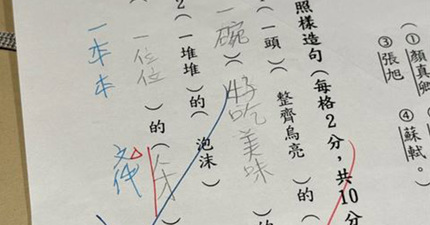 （①顏真卿
③張旭　④蘇軾。
照樣造句（每格2分，共10分
（一頭）（整齊烏亮）的（
（一碗）（好吃美味）的（
2（一堆堆）的（泡沫）
（一位位）的（
一本本